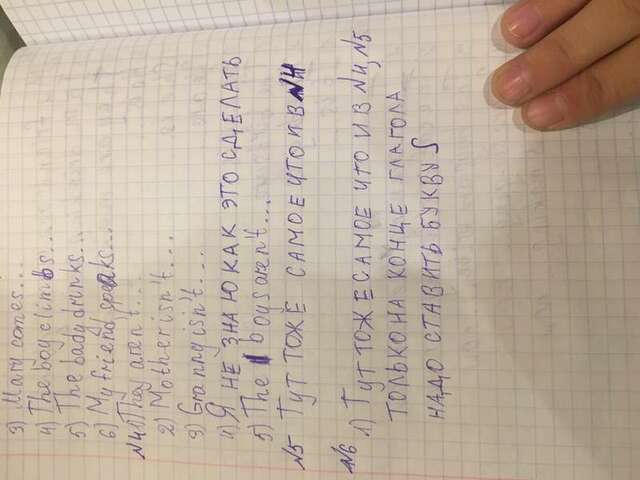 3) Mary comes...
4) The boy climbs...
5) The bady drinks...
6) My friend speaks...
№4 1) They aren't...
2) Mother isn't...
3) Granny isn't...
4) Я НЕ ЗНАЮ КАК ЭТО СДЕЛАТЬ
5) The boys aren't...
№5 ТУТ ТОЖЕ САМОЕ ЧТО И В №4
№6 1) ТУТ ТОЖЕ САМОЕ ЧТО И В №4, №5
ТОЛЬКО НА КОНЦЕ ГЛАГОЛА
НАДО СТАВИТЬ БУКВУ S